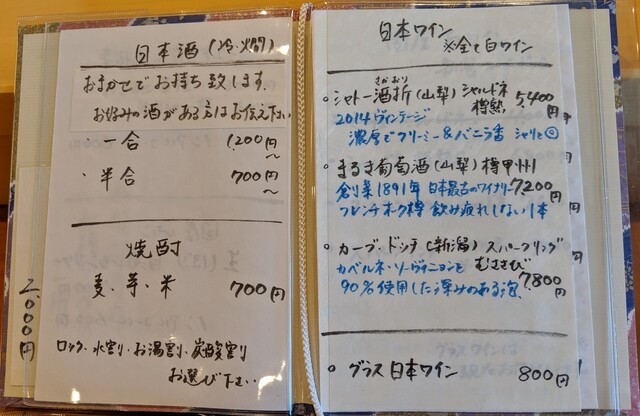 日本酒(冷・燗)
おまかせでお持ち致します。
お好みの酒がある方はお伝え下さい
・一合 1,200円～
・半合 700円～
焼酎
麦・芋・米 700円
ロック、水割り、お湯割り、炭酸割り
お選び下さい
2000円
日本ワイン
※全て白ワイン
。シャトー酒折(山梨)シャルドネ樽熟 5,400円
さかおり
2014ヴィンテージ
濃厚でクリーミー&バニラ香 シャリと◎
。まるき葡萄酒(山梨)樽甲州
創業1891年 日本最古のワイナリー 7200円
フレンチオーク樽 飲み疲れしない1本
。カーブ・ドッチ(新潟)スパークリング
むささび
カベルネ・ソーヴィニョンを
90%使用した深みのある泡、 7800円
。グラス日本ワイン 800円